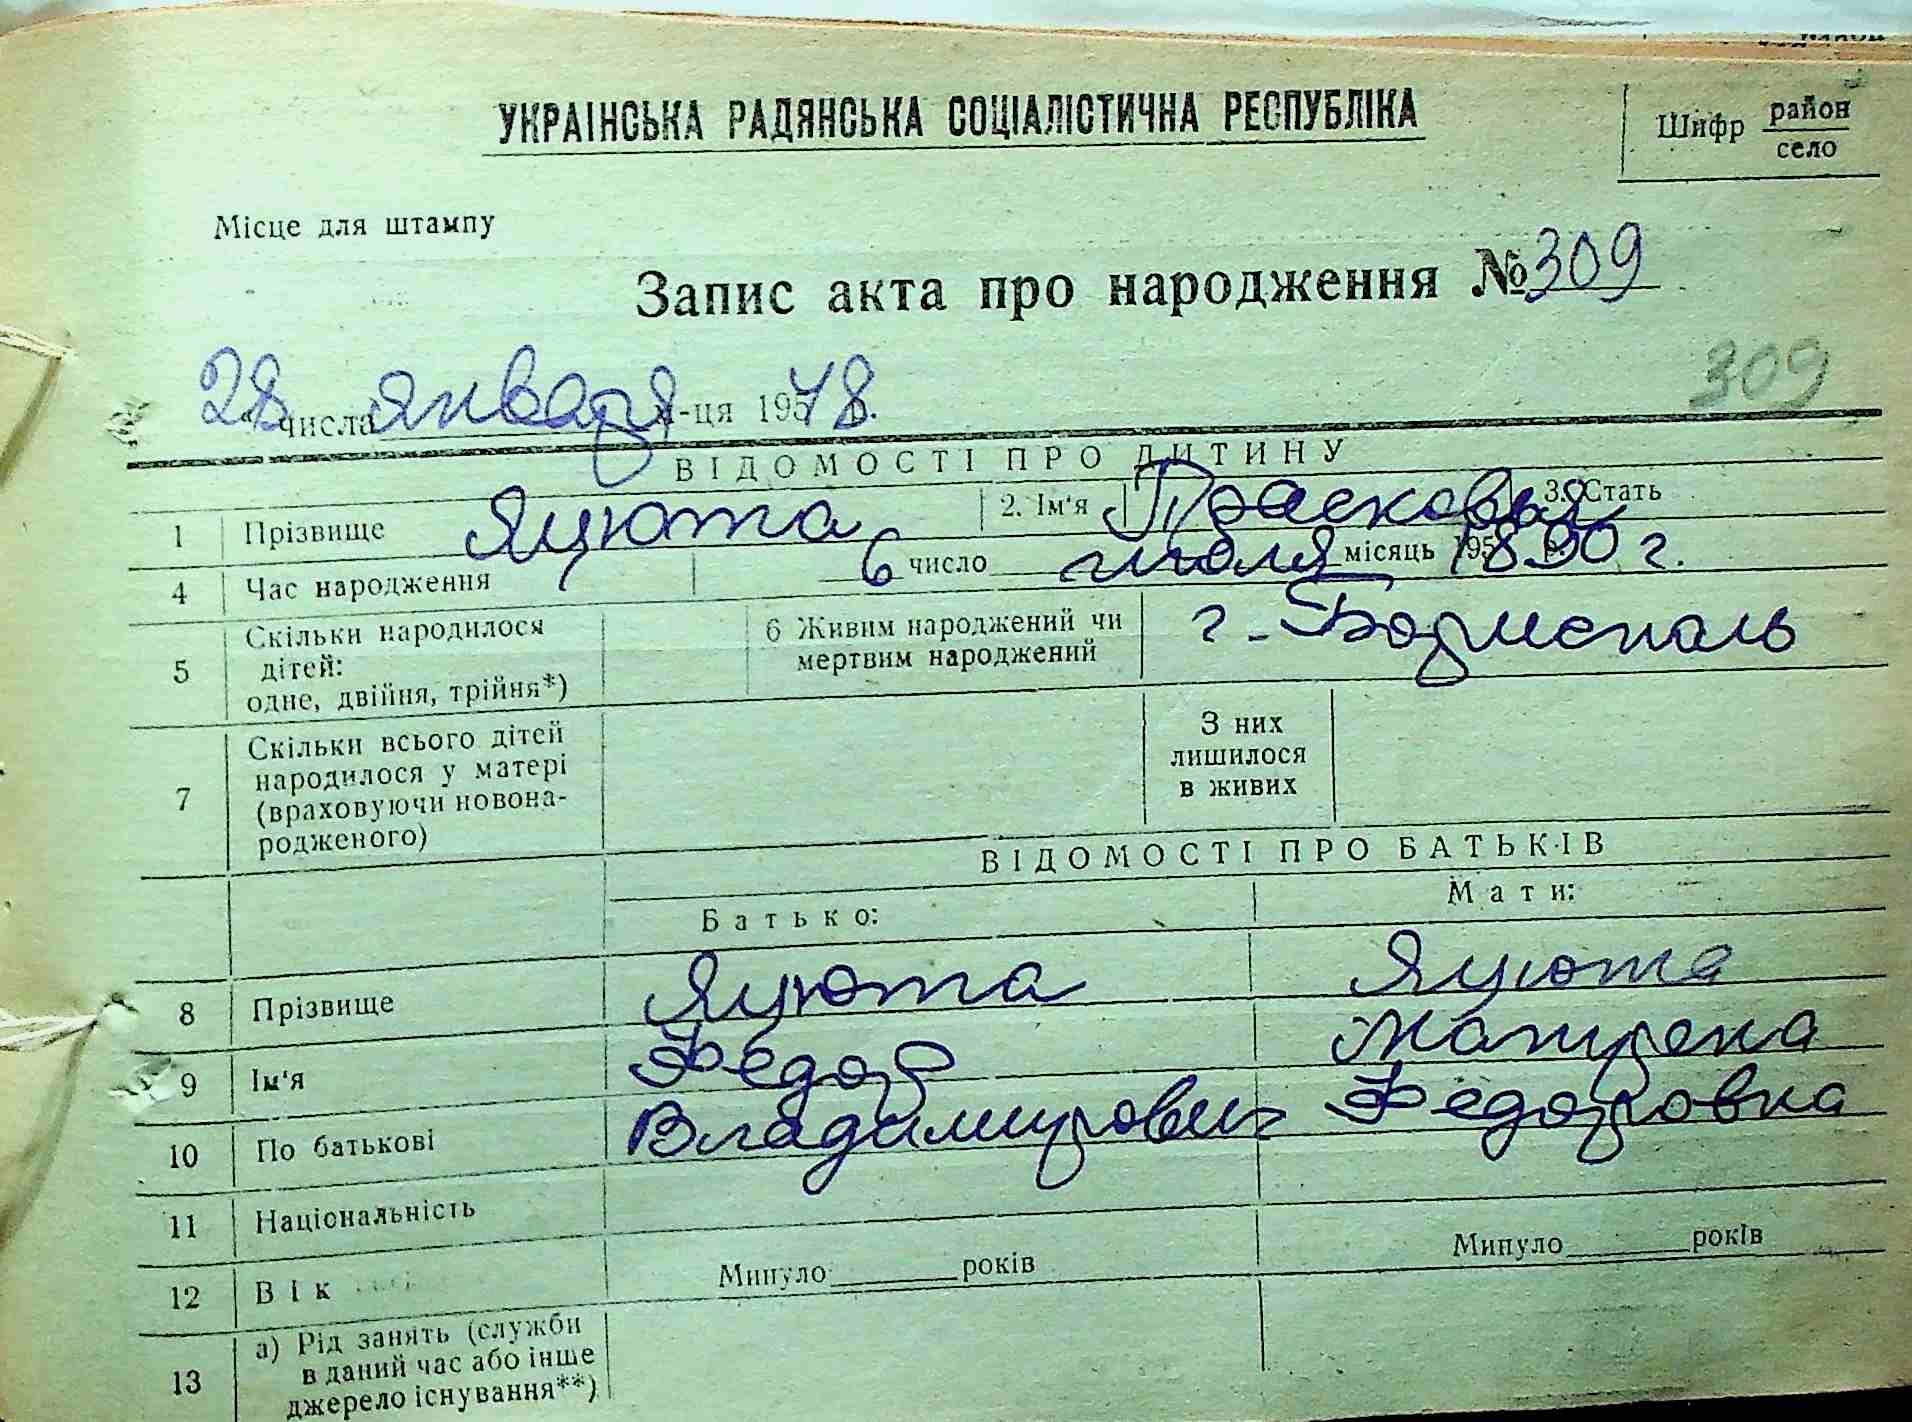 УКРАЇНСЬКА РАДЯНСЬКА СОЦІАЛІСТИЧНА РЕСПУБЛІКА
Шифр район
село
Місце для штампу
Запис акта про народження № 309
309
28 числа января м-ця 1948 р.
ВІДОМОСТІ ПРО ДИТИНУ
1 Прізвище Яцюта 2. Ім'я Прасковья 3. Стать
4 Час народження 6 число июля місяць 1890 г.
5 Скільки народилося дітей: одне, двійня, трійня*) 6 Живим народжений чи мертвим народжений г. Борисполь
7 Скільки всього дітей народилося у матері (враховуючи новонародженого) З них лишилося в живих
ВІДОМОСТІ ПРО БАТЬКІВ
Батько: Мати:
8 Прізвище Яцюта Яцюта
9 Ім'я Федор Матрена
10 По батькові Владимирович Федоровна
11 Національність
12 Вік Минуло ______ років Минуло ______ років
13 а) Рід занять (служби в даний час або інше джерело існування**)